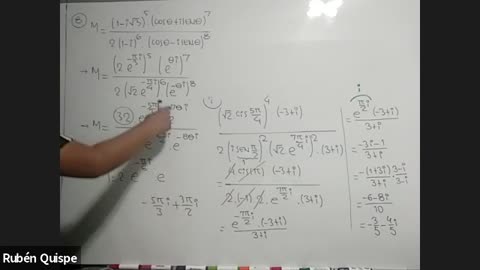 ⑧ M = (1-i√3)^5 · (cosθ+isenθ)^7
2(1-i)^6 · (cosθ-isenθ)^8
→ M = (2 e^{-π/3 i})^5 (e^{θi})^7
2(√2 e^{-π/4 i})^6 (e^{-θi})^8
→ M = 32
e^{-8θi}
- 5π/3 i + 3π/2 i
i
(√2 cis 5π/4)^4 · (-3+i)
2(i sen π/2)^2 (√2 e^{7π/4 i})^2 · (3+i)
= 4 cis(5π) · (-3+i)
2·(-1)·2· e^{7π/2 i} · (3+i)
= e^{-7π/2 i} · (-3+i)
3+i
i
= e^{π/2 i} · (-3+i)
3+i
= -3i-1
3+i
= -(1+3i) 3-i
3+i 3-i
= -6-8i
10
= -3/5 - 4/5 i
Rubén Quispe